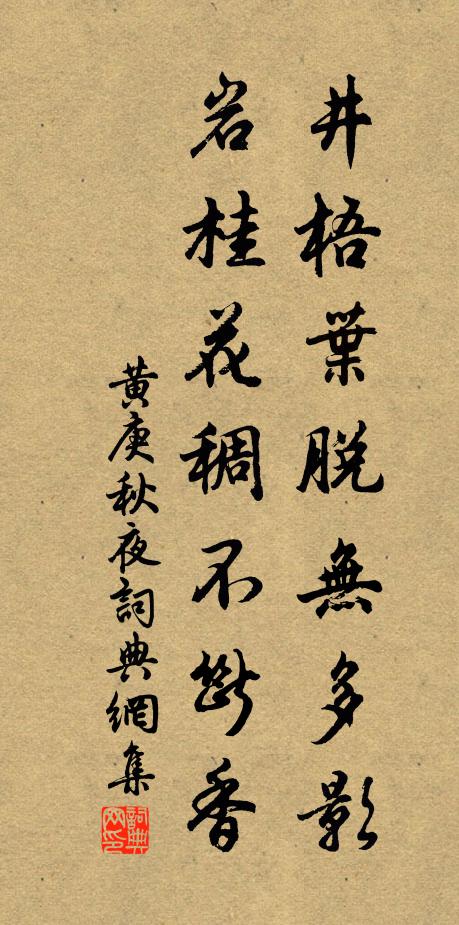 井梧葉脫無多影
岩桂花稠不斷香
黃庚秋夜詞典網集
詞典網印